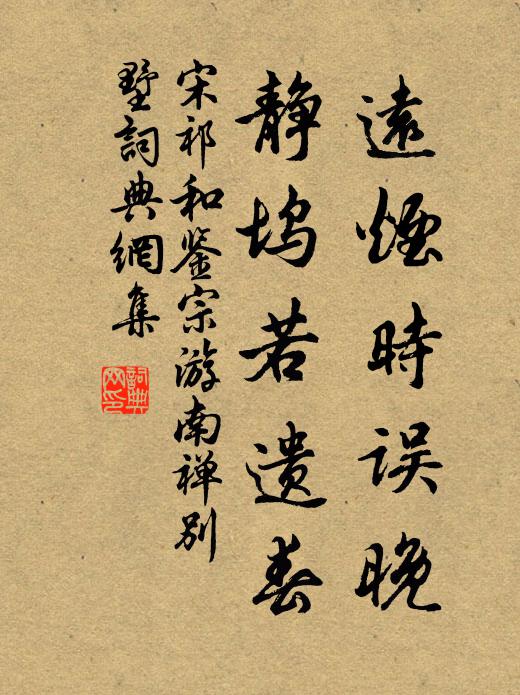 遠煙時误晚
静坞若遗春
宋祁和鉴宗游南禅别
墅詞典網集
詞典
网印